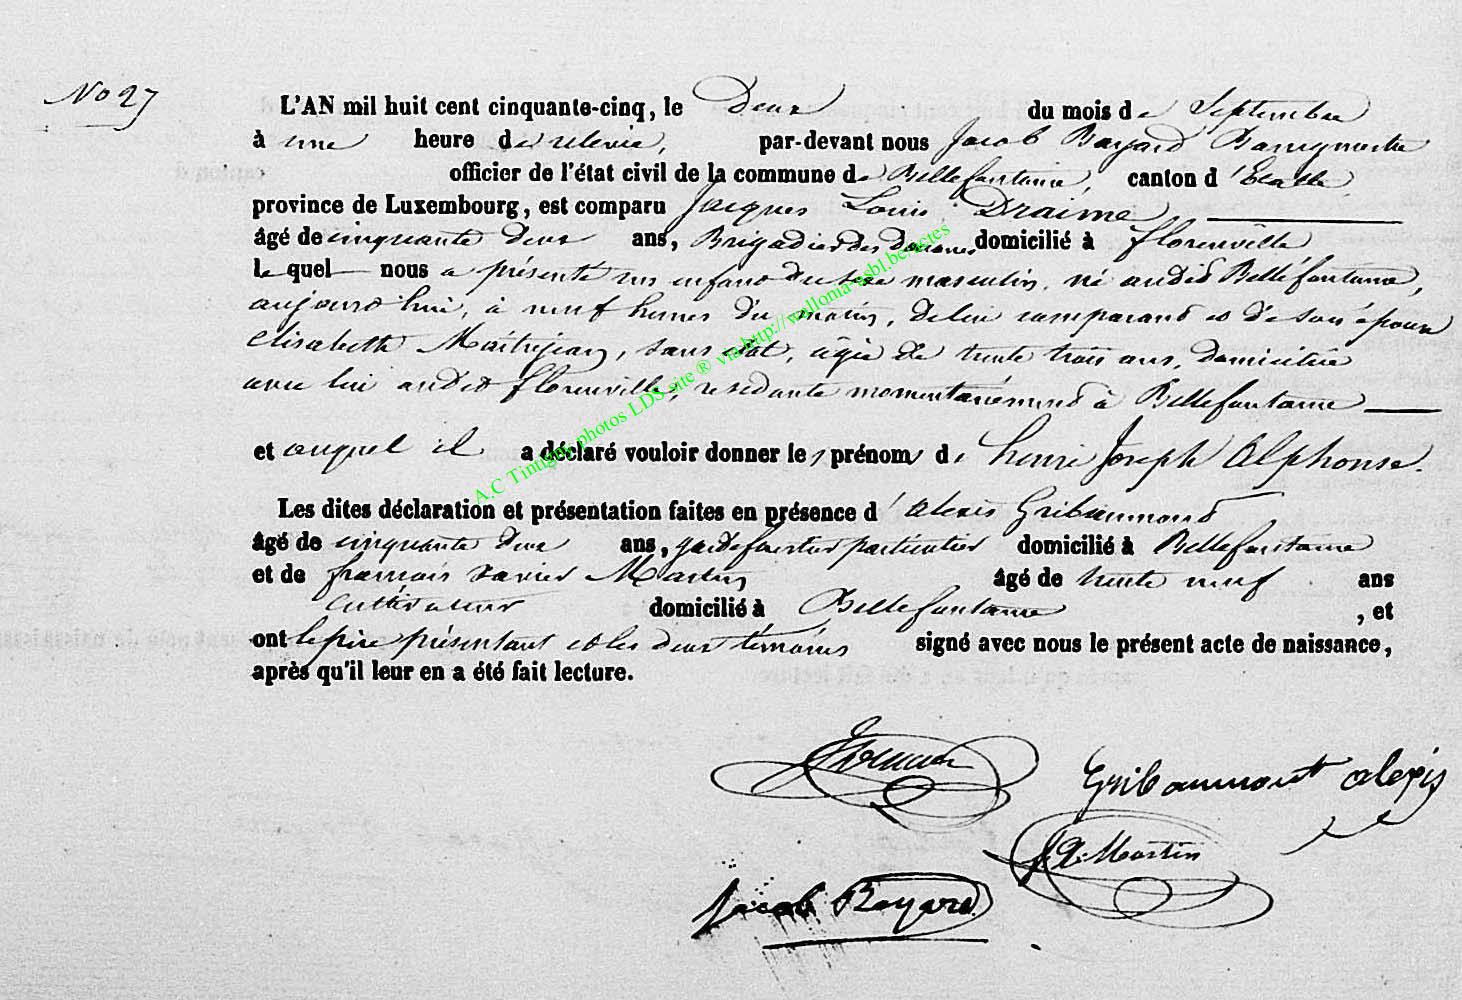 No 27
L'AN mil huit cent cinquante-cinq, le Deux du mois de Septembre
à une heure de relevée, par-devant nous Jacob Bayard Bourgmestre
officier de l'état civil de la commune de Bellefontaine, canton d'Etalle
province de Luxembourg, est comparu Jacques Louis Draime
âgé de cinquante deux ans, Brigadier des Douanes domicilié à florenville
lequel nous a présenté un enfant du sexe masculin, né audit Bellefontaine,
aujourd'hui, à neuf heures du matin, de lui comparant et de son épouse
Elisabeth Maitrejean, sans état, agée de trente trois ans, domiciliée
avec lui audit florenville, residante momentanément à Bellefontaine
et auquel il a déclaré vouloir donner les prénoms de henri Joseph Alphonse.
Les dites déclaration et présentation faites en présence d'alexis Gribaumond
âgé de cinquante deux ans, garde forestier particulier domicilié à Bellefontaine
et de françois xavier Martin âgé de trente neuf ans
cultivateur domicilié à Bellefontaine, et
ont le père présentant et les deux témoins signé avec nous le présent acte de naissance,
après qu'il leur en a été fait lecture.
Gribaumont alexis
f. X. Martin
Jacob Bayard
A.C Tintigny photos LDS site ® via http://wallonia-asbl.be/actes